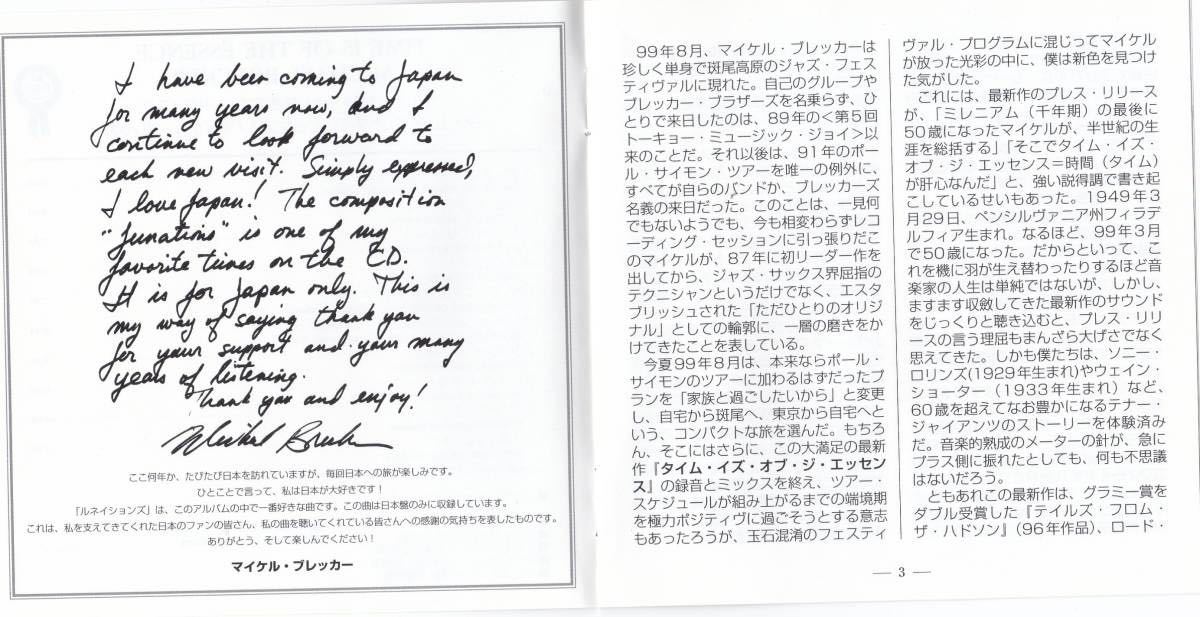 I have been coming to Japan
for many years now, and I
continue to look forward to
each new visit. Simply expressed,
I love Japan! The composition
"Lunations" is one of my
favorite tunes on the CD.
It is for Japan only. This is
my way of saying thank you
for your support and your many
years of listening.
Thank you and enjoy!
Michael Brecker
ここ何年か、たびたび日本を訪れていますが、毎回日本への旅が楽しみです。
ひとことで言って、私は日本が大好きです！
「ルネイションズ」は、このアルバムの中で一番好きな曲です。この曲は日本盤のみに収録しています。
これは、私を支えてきてくれた日本のファンの皆さん、私の曲を聴いてくれている皆さんへの感謝の気持ちを表したものです。
ありがとう、そして楽しんでください！
マイケル・ブレッカー
99年8月、マイケル・ブレッカーは
珍しく単身で斑尾高原のジャズ・フェス
ティヴァルに現れた。自己のグループや
ブレッカー・ブラザーズを名乗らず、ひ
とりで来日したのは、89年の＜第5回
トーキョー・ミュージック・ジョイ＞以
来のことだ。それ以後は、91年のポー
ル・サイモン・ツアーを唯一の例外に、
すべてが自らのバンドか、ブレッカーズ
名義の来日だった。このことは、一見何
でもないようでも、今も相変わらずレコ
ーディング・セッションに引っ張りだこ
のマイケルが、87年に初リーダー作を
出してから、ジャズ・サックス界屈指の
テクニシャンというだけでなく、エスタ
ブリッシュされた「ただひとりのオリジ
ナル」としての輪郭に、一層の磨きをか
けてきたことを表している。
今夏99年8月は、本来ならポール・
サイモンのツアーに加わるはずだったプ
ランを「家族と過ごしたいから」と変更
し、自宅から斑尾へ、東京から自宅へと
いう、コンパクトな旅を選んだ。もちろ
ん、そこにはさらに、この大満足の最新
作『タイム・イズ・オブ・ジ・エッセン
ス』の録音とミックスを終え、ツアー・
スケジュールが組み上がるまでの端境期
を極力ポジティヴに過ごそうとする意志
もあったろうが、玉石混淆のフェスティ
ヴァル・プログラムに混じってマイケル
が放った光彩の中に、僕は新色を見つけ
た気がした。
これには、最新作のプレス・リリース
が、「ミレニアム（千年期）の最後に
50歳になったマイケルが、半世紀の生
涯を総括する」「そこでタイム・イズ・
オブ・ジ・エッセンス＝時間（タイム）
が肝心なんだ」と、強い説得調で書き起
こしているせいもあった。1949年3
月29日、ペンシルヴァニア州フィラデ
ルフィア生まれ。なるほど、99年3月
で50歳になった。だからといって、こ
れを機に羽が生え替わったりするほど音
楽家の人生は単純ではないが、しかし、
ますます収斂してきた最新作のサウンド
をじっくりと聴き込むと、プレス・リリ
ースの言う理屈もまんざら大げさでなく
思えてきた。しかも僕たちは、ソニー・
ロリンズ(1929年生まれ)やウェイン・
ショーター（1933年生まれ）など、
60歳を超えてなお豊かになるテナー・
ジャイアンツのストーリーを体験済み
だ。音楽的熟成のメーターの針が、急に
プラス側に振れたとしても、何も不思議
はないだろう。
ともあれこの最新作は、グラミー賞を
ダブル受賞した『テイルズ・フロム・
ザ・ハドソン』（96年作品）、ロード・
— 3 —